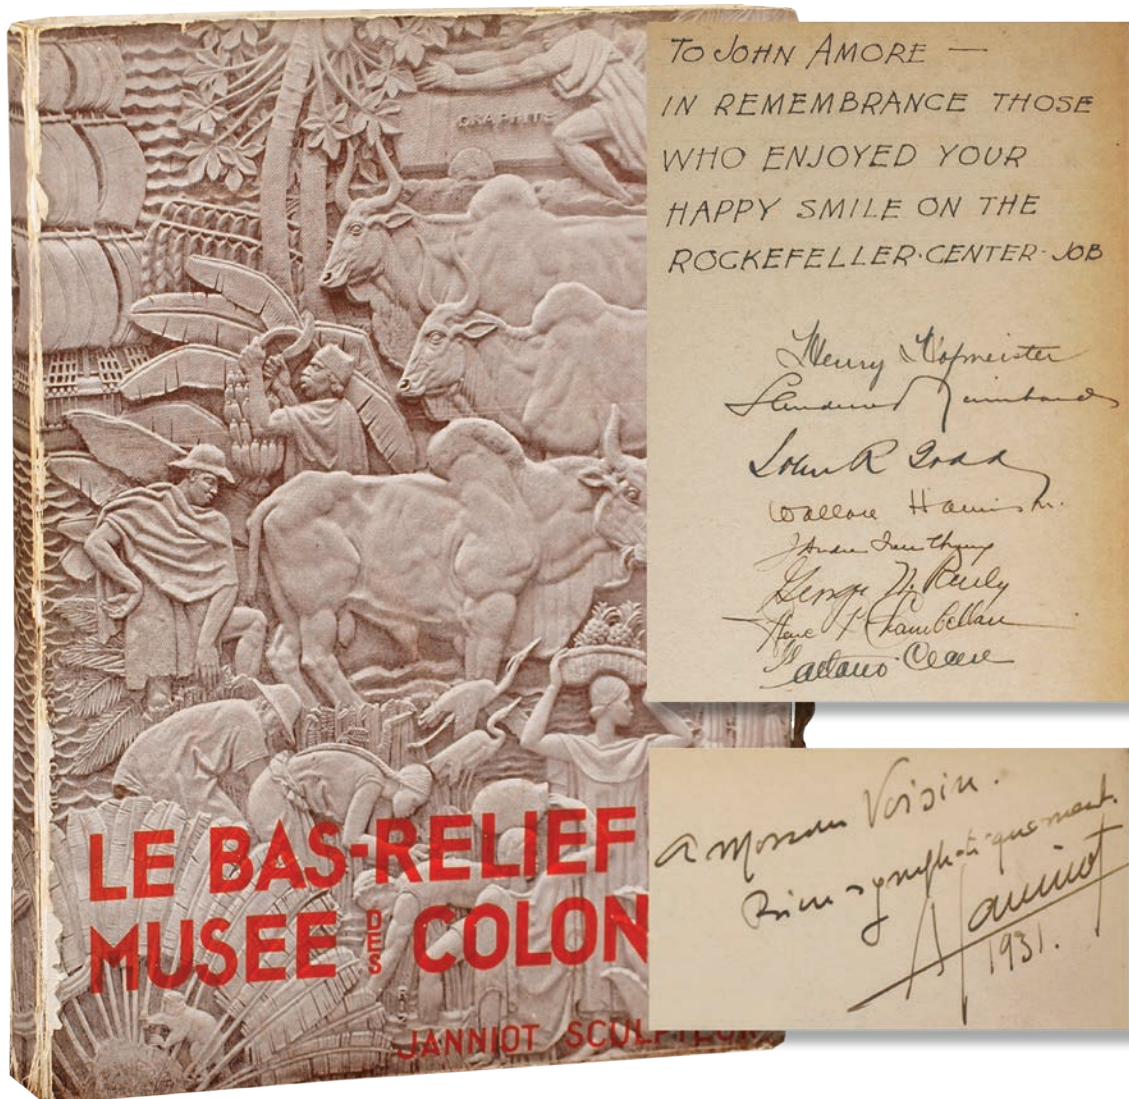 GRAPHITE
LE BAS-RELIEF
MUSEE DES COLON
JANNIOT SCULPTEUR
TO JOHN AMORE —
IN REMEMBRANCE THOSE
WHO ENJOYED YOUR
HAPPY SMILE ON THE
ROCKEFELLER·CENTER·JOB
Henry Hofmeister
John R Todd
Wallace Harrison
Rene P Chambellan
Gaetano Cecere
A Monsieur Voisin.
Bien sympathiquement.
A Janniot
1931.